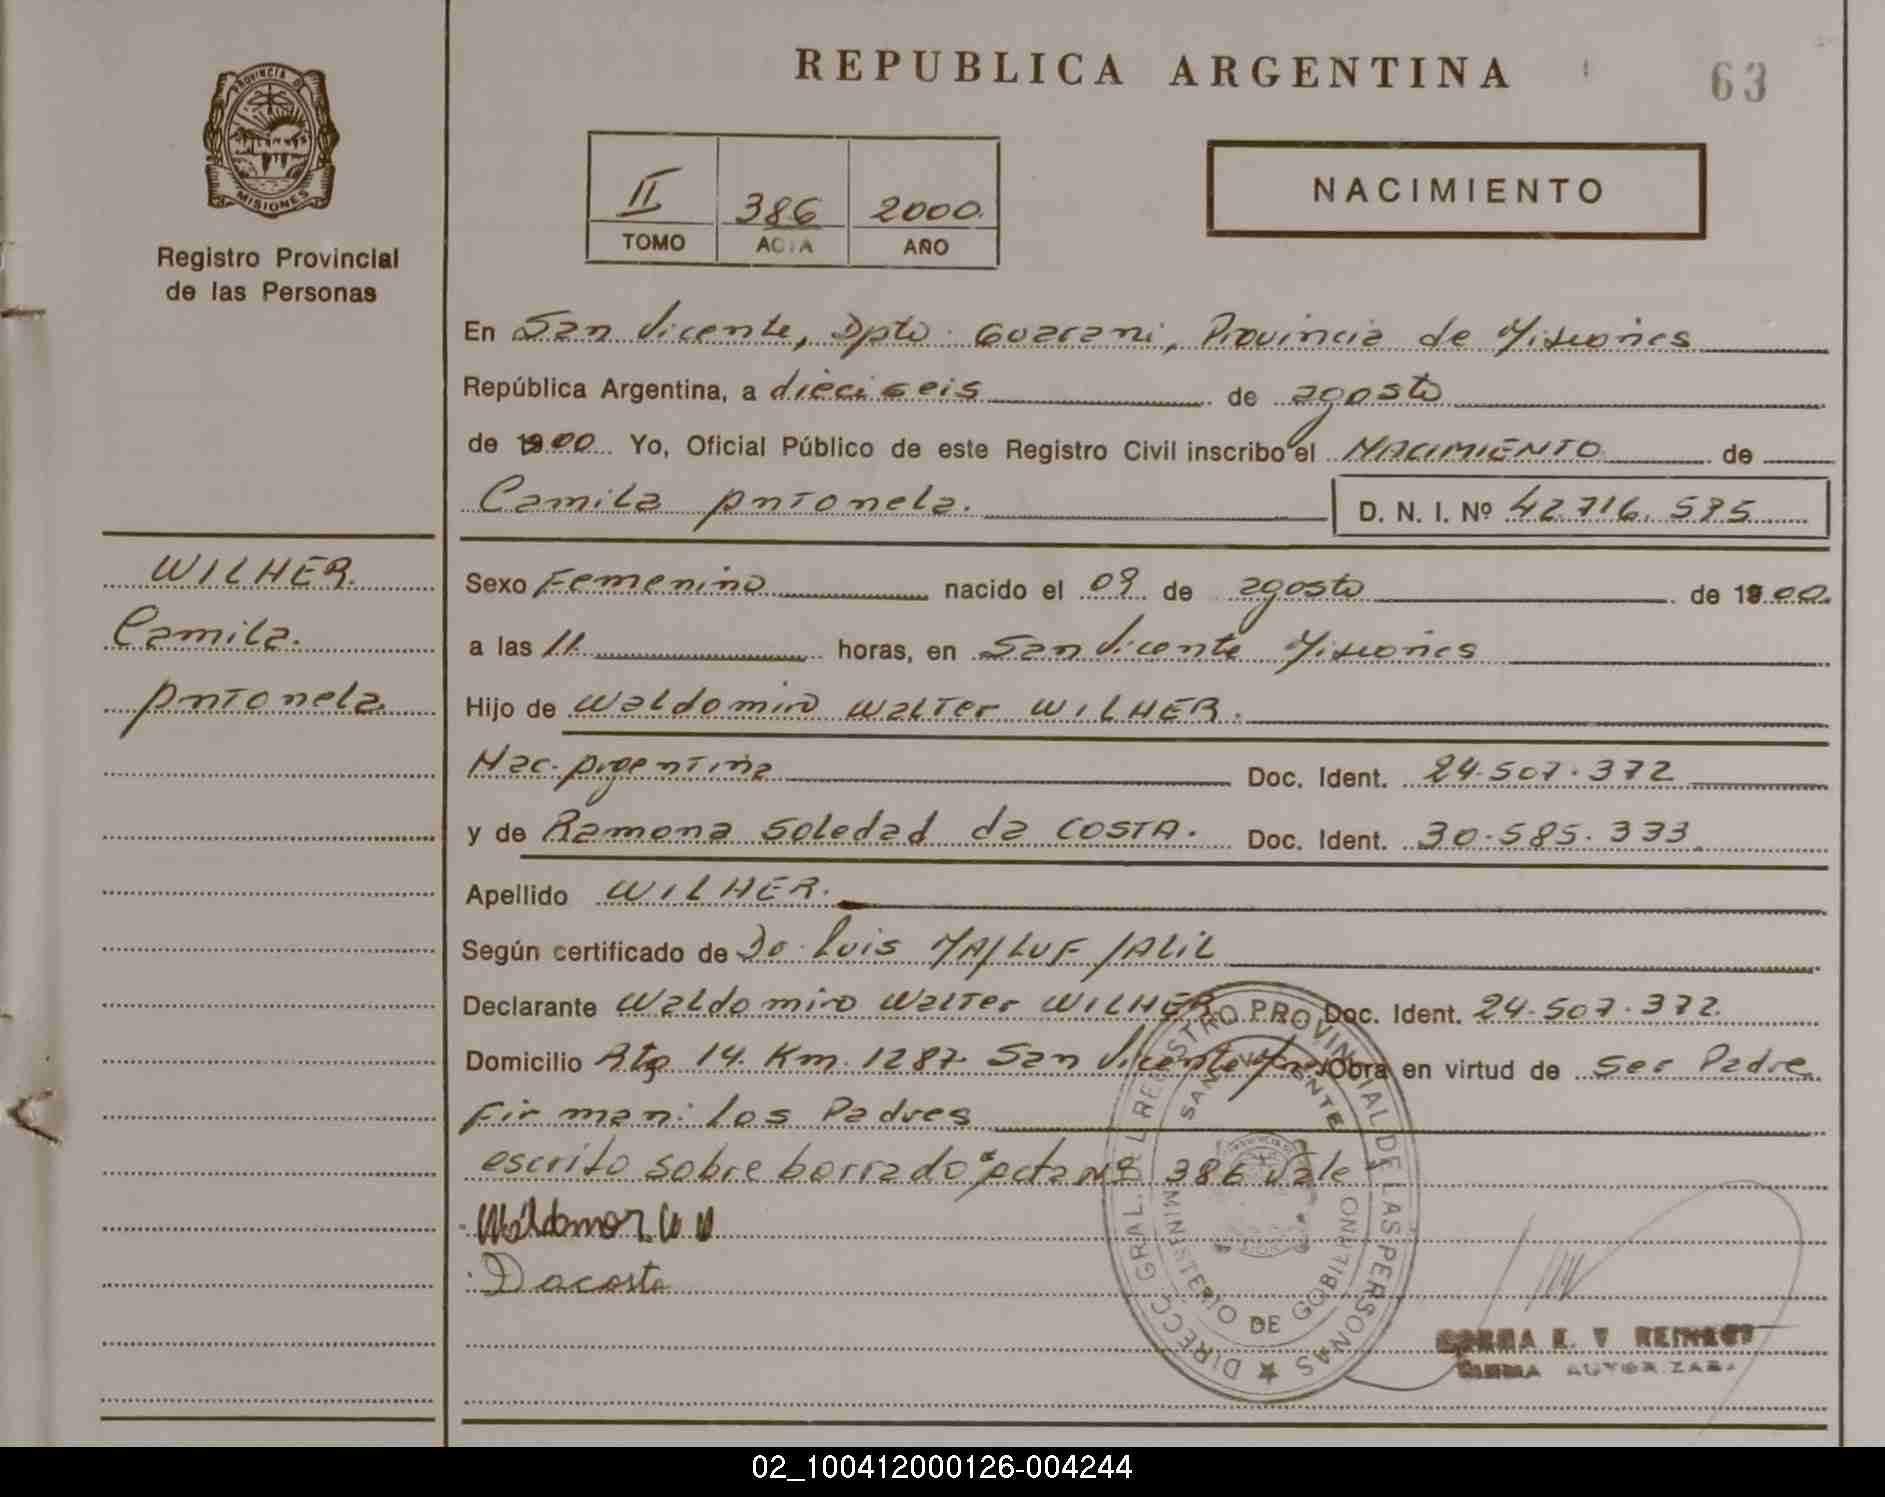 REPUBLICA ARGENTINA
63
PROVINCIA DE
MISIONES
Registro Provincial
de las Personas
II 386 2000
TOMO ACTA AÑO
NACIMIENTO
En San Vicente, Dpto. Guarani, Provincia de Misiones
República Argentina, a dieciseis de agosto
de 1900 Yo, Oficial Público de este Registro Civil inscribo el NACIMIENTO de
Camila Antonela. D. N. I. Nº 42.716.595
WILHER.
Camila.
Antonela.
Sexo Femenino nacido el 09 de agosto de 1900.
a las 11. horas, en San Vicente Misiones
Hijo de Waldomiro Walter WILHER.
Nac. Argentina Doc. Ident. 24.507.372
y de Ramona Soledad da COSTA. Doc. Ident. 30.585.333
Apellido WILHER.
Según certificado de Do. Luis JALIL
Declarante Waldomiro Walter WILHER Doc. Ident. 24.507.372.
Domicilio Rta 14. Km. 1287. San Vicente Obra en virtud de ser Padre
Firman: los Padres
escrito sobre borrado "acta Nº 386 vale
Dacosta
DIRECC. GRAL. DEL REGISTRO PROVINCIAL DE LAS PERSONAS
SAN VICENTE
MINISTERIO DE GOBIERNO
FIRMA AUTORIZADA
02_100412000126-004244